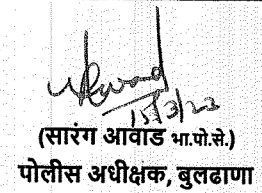 15/3/23
(सारंग आवाड भा.पो.से.)
पोलीस अधीक्षक, बुलढाणा